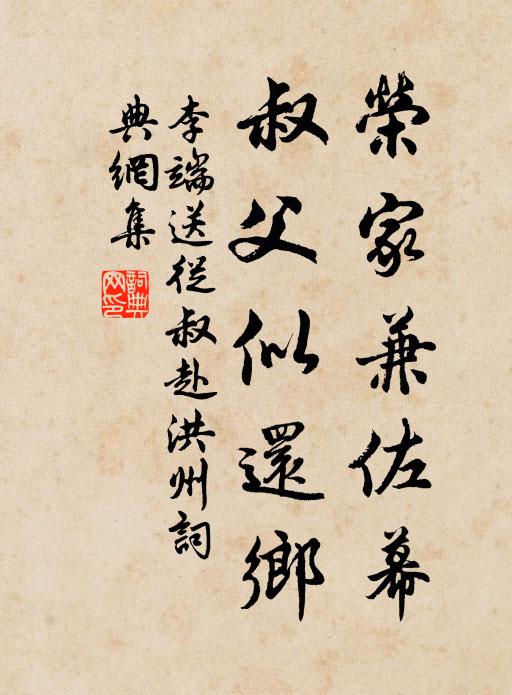 榮家兼佐幕
叔父似還鄉
李端送從叔赴洪州詞
典網集
詞典
网印